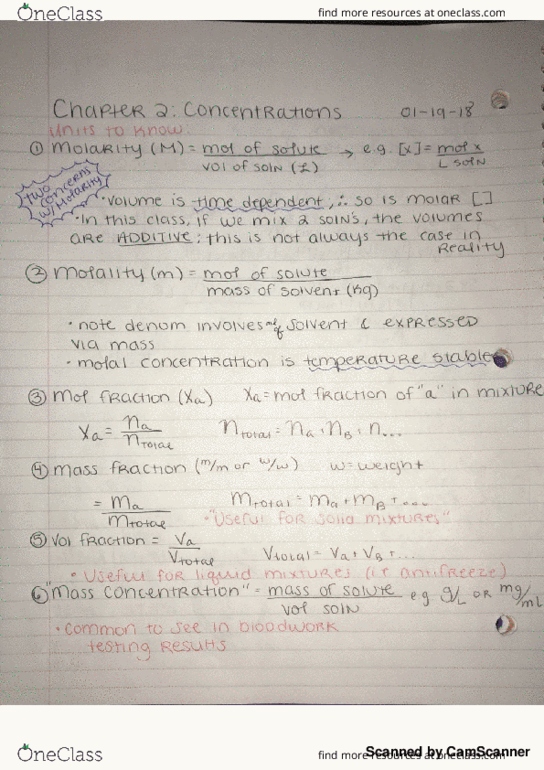 OneClass
find more resources at oneclass.com
Chapter 2: Concentrations 01-19-18
Units to know:
① Molarity (M) = mol of solute / vol of soln (L) → e.g. [x] = mol x / L soln
Two concerns w/ Molarity
· Volume is time dependent, ∴ so is molar []
· In this class, if we mix 2 soln's, the volumes
are ADDITIVE; this is not always the case in
Reality
② Molality (m) = mol of solute / mass of solvent (kg)
· note denom involves of solvent & expressed
via mass
· molal concentration is temperature stable
③ Mol fraction (Xa) Xa = mol fraction of "a" in mixture
Xa = na / nTotal nTotal = na + nB + n...
④ Mass fraction (m/m or w/w) w = weight
= ma / mTotal mTotal = ma + mB + ....
· "Useful for solid mixtures"
⑤ Vol fraction = Va / VTotal VTotal = Va + VB + ...
· Useful for liquid mixtures (ie antifreeze)
⑥ "Mass concentration" = mass of solute / vol soln eg g/L or mg/mL
· Common to see in bloodwork
testing results
OneClass
find more resources at oneclass.com
Scanned by CamScanner